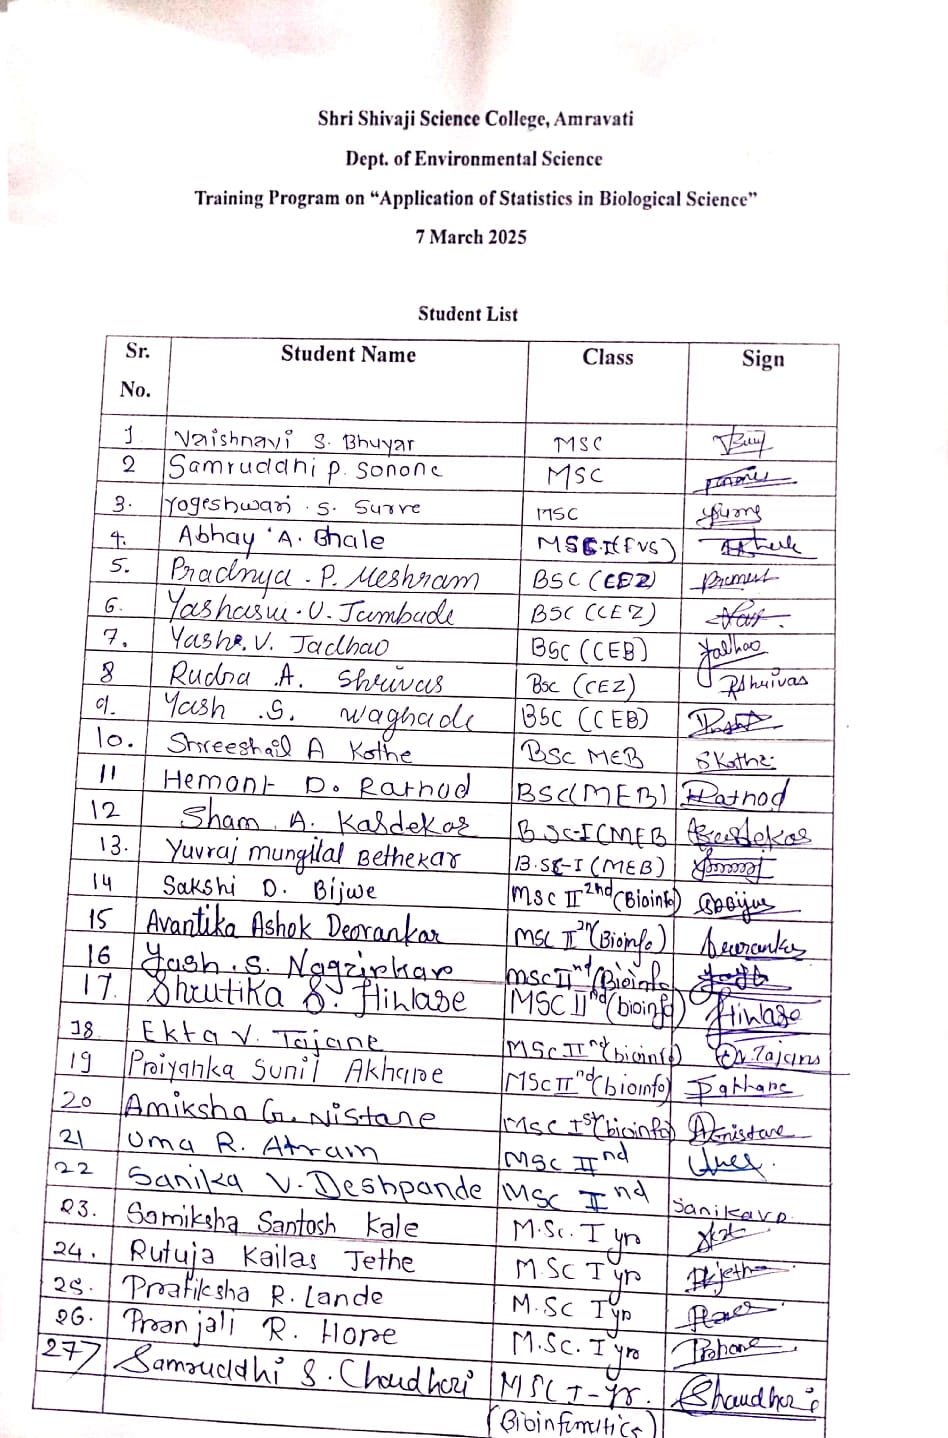 Shri Shivaji Science College, Amravati
Dept. of Environmental Science
Training Program on “Application of Statistics in Biological Science”
7 March 2025
Student List
Sr. No. Student Name Class Sign
1 Vaishnavi S. Bhuyar MSC
2 Samruddhi P. Sonone MSC
3. Yogeshwari S. Surve MSC
4. Abhay A. Bhale MSC-I(EVS)
5. Pradnya . P. Meshram BSC (CEZ)
6. Yashaswi . V. Jambade BSC (CEZ)
7. Yash . V. Jadhao BSC (CEB) Jadhao
8 Rudra .A. Shrivas BSC (CEZ) RShrivas
9. Yash .S. Waghade BSC (CEB)
10. Shreeshail A Kothe BSC MEB SKothe
11 Hemant D. Rathod BSC(MEB) Rathod
12 Sham A. Kasdekar B.SC-I(MEB Kasdekar
13. Yuvraj mungilal Bethekar B.SC-I (MEB)
14 Sakshi D. Bijwe MSC II 2nd (Bioinfo)
15 Avantika Ashok Deorankar MSC II 2nd (Bioinfo) Deorankar
16 Yash . S. Nagzirkar MSC II nd (Bioinfo
17. Shrutika S. Hiwase MSC II nd (bioinfo) Hiwase
18. Ekta V. Tajane MSc II nd (bioinfo) Tajane
19 Priyanka Sunil Akhare MSc II nd (bioinfo)
20 Amiksha G. Nistane MSC I st (bioinfo) AGnistane
21 Uma R. Atram MSC II nd
22 Sanika V. Deshpande MSC II nd SanikaVD
23. Samiksha Santosh Kale M.Sc. I yr
24. Rutuja Kailas Jethe M.SC I yr Rjethe
25. Pratiksha R. Lande M.SC I yr
26. Pranjali R. Hore M.SC. I yr Prhore
27 Samruddhi S. Chaudhari MSC I-yr. SChaudhari
(Bioinformatics)